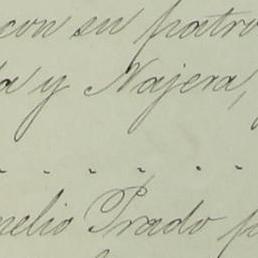 con su patro
da y Najera,
relio Prado p